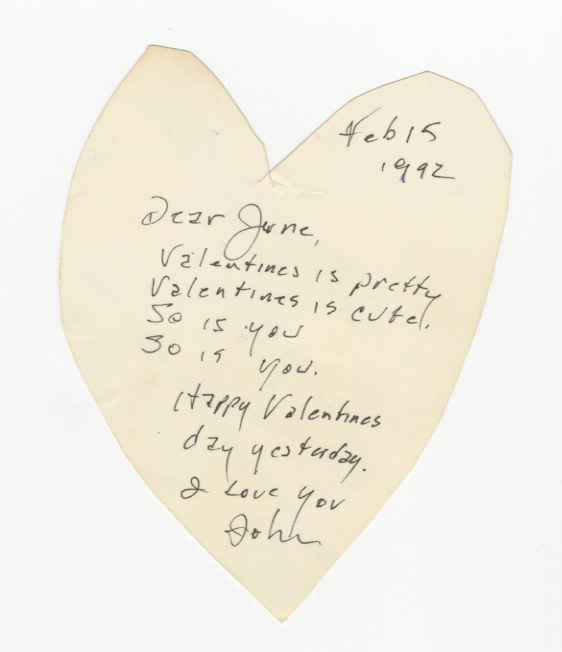 Feb 15
1992
Dear June,
Valentines is pretty
Valentines is cute.
So is you
So is you.
Happy Valentines
day yesterday.
I Love you
John